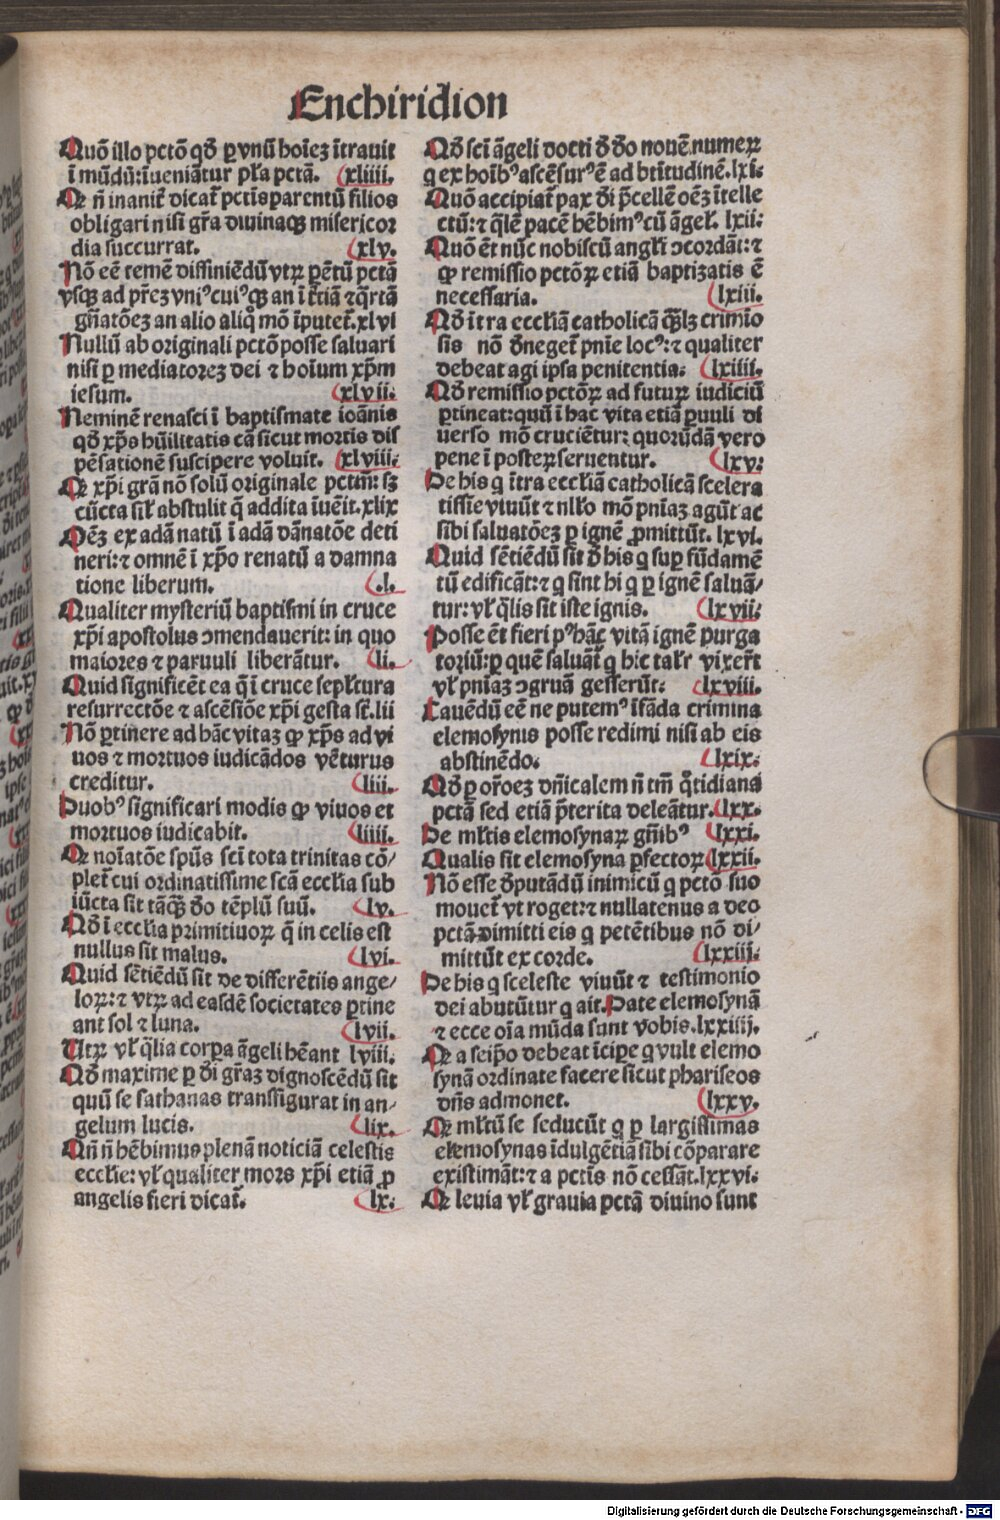 Enchiridion
Quō illo pctō qď ꝑ vnū hoīeꝫ ītrauit
ī mūdū: īueniātur pl̄a pctā. xliiii.
Qꝛ n̄ inanit̄ dicat̄ pctīs parentū filios
obligari nisi gr̄a diuinaqꝫ misericor
dia succurrat. xlv.
Nō eē temē diffiniēdū vtꝝ ꝑētū pctā
vsqꝫ ad pr̄ez vniꝰcuiꝰqꝫ an ī t̄tiā ⁊ q̄rtā
gn̄atōeꝫ an alio aliq̄ mō īputet̄. xlvi
Nullū ab originali pctō posse saluari
nisi ꝑ mediatoreꝫ dei ⁊ hoīum xp̄m
iesum. xlvii:
Neminē renasci ī baptismate ioānis
qď xp̄s hūilitatis cā sicut mortis dis
pēsationē suscipere voluit. xlviii:
Qꝛ xp̄i grā nō solū originale pctm̄: sꝫ
cūcta sil̄ abstulit q̄ addita īuēit. xlix
Oēꝫ ex adā natū ī adā dānatōe deti
neri: ⁊ omnē ī xp̄o renatū a damna
tione liberum. .l.
Qualiter mysteriū baptismi in cruce
xp̄i apostolus ↄmendauerit: in quo
maiores ⁊ paruuli liberātur. li.
Quid significēt ea q̄ ī cruce sepl̄tura
resurrectōe ⁊ ascēsiōe xp̄i gesta st̄. lii
Nō ꝑtinere ad hāc vitaꝫ ꝙ xp̄s ad vi
uos ⁊ mortuos iudicādos vēturus
creditur. liii.
Duobꝰ significari modis ꝙ viuos et
mortuos iudicabit. liiii.
Qꝛ noīatōe spūs scī tota trinitas cō⸗
plet̄ cui ordinatissime scā eccl̄ia sub
iūcta sit tāqꝫ ďo tēplū suū. lv.
Qď ī eccl̄ia primitiuoꝝ q̄ in celis est
nullus sit malus. lvi.
Quid sētiēdū sit de differētiis ange⸗
loꝝ: ⁊ vtꝝ ad easdē societates ꝑtine
ant sol ⁊ luna. lvii.
Utꝝ vl̄ q̄lia corꝑa āgeli hēant lviii.
Qď maxime ꝑ ďi gr̄aꝫ dignoscēdū sit
quū se sathanas transfigurat in an⸗
gelum lucis. lix.
Qn̄ n̄ hēbimus plenā noticiā celestis
eccl̄ie: vl̄ qualiter mors xp̄i etiā ꝓ
angelis fieri dicat̄. lx:
Qď scī āgeli docti ď ďo nouē numeꝝ
q ex hoībꝰ ascēsurꝰ ē ad btītudinē. lxi:
Quō accipiat̄ pax ďi p̄cellē oēꝫ ītelle
ctū: ⁊ q̄lē pacē hēbimꝰ cū āgel̄. lxii:
Quō ēt nūc nobiscū angl̄i ↄcordāt: ⁊
ꝙ remissio pctōꝝ etiā baptizatis ē
necessaria. lxiii.
Qď ītra eccl̄iā catholicā qͣꝫlꝫ crimīo
sis nō ďneget̄ pnīe locꝰ: ⁊ qualiter
debeat agi ipsa penitentia: lxiiii.
Qď remissio pctōꝝ ad futuꝝ iudiciū
ꝑtineat: quū ī hac vita etiā ꝑuuli di
uerso mō cruciētur: quorūdā vero
pene ī posteꝝ seruentur. lxv:
De his q ītra eccl̄iā catholicā scelera
tissīe viuūt ⁊ nll̄o mō pnīaꝫ agūt ac
sibi saluatōeꝫ ꝑ ignē ꝓmittūt. lxvi.
Quid sētiēdū sit ď his q suꝑ fūdamē
tū edificāt: ⁊ q sint hi q ꝑ ignē saluā⸗
tur: vl̄ q̄lis sit iste ignis. lxvii:
Posse ēt fieri pꝰ hāc vitā ignē purga
toriū: ꝑ quē saluāt̄ q hic tal̄r vixer̄t
vl̄ pnīaꝫ ↄgruā gesserūt: lxviii.
Cauēdū eē ne putemꝰ īfāda crimina
elemosynis posse redimi nisi ab eis
abstinēdo: lxix:
Qď ꝑ or̄oeꝫ dn̄icalem n̄ tm̄ q̄tidiana
pctā sed etiā p̄terita deleātur. lxx.
De ml̄tis elemosynaꝝ gn̄ibꝰ lxxi.
Qualis sit elemosyna ꝑfectoꝝ lxxii.
Nō esse ďputādū inimicū q pctō suo
mouet̄ vt roget: ⁊ nullatenus a deo
pctā dimitti eis q petētibus nō di⸗
mittūt ex corde. lxxiij.
De his q sceleste viuūt ⁊ testimonio
dei abutūtur q ait. Date elemosynā
⁊ ecce oīa mūda sunt vobis. lxxiiij.
Qꝛ a seip̄o debeat īciꝑe q vult elemo
synā ordinate facere sicut phariseos
dn̄s admonet. lxxv.
Qꝛ ml̄tū se seducūt q ꝑ largissimas
elemosynas īdulgētiā sibi cōparare
existimāt: ⁊ a pctīs nō cessāt. lxxvi:
Qꝛ leuia vl̄ grauia pctā diuino sunt
Digitalisierung gefördert durch die Deutsche Forschungsgemeinschaft - DFG